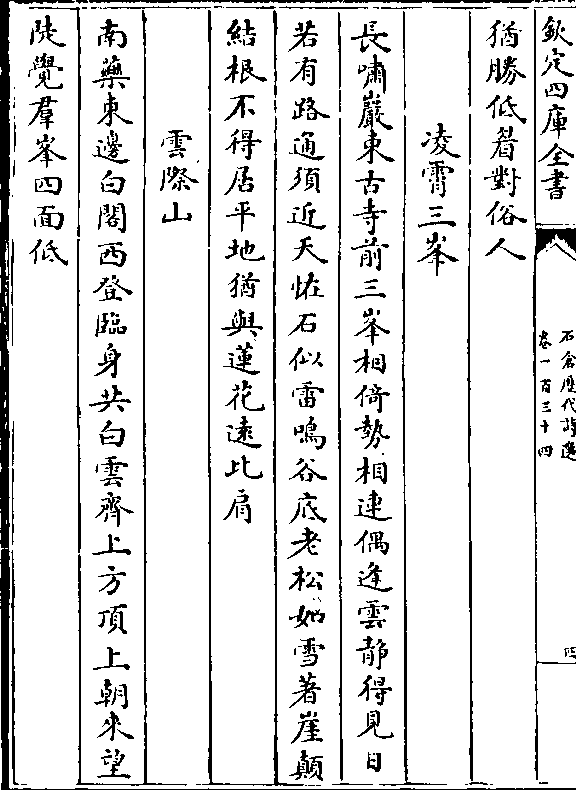 欽定四庫全書
石倉厯代詩選
卷一百三十四
四
猶勝低眉對俗人
凌霄三峯
長嘯巖東古寺前三峯相倚勢相連偶逢雲靜得見日
若有路通須近天恠石似雷鳴谷底老松如雪著崖顛
結根不得居平地猶與蓮花遠比肩
雲際山
南藥東邊白閣西登臨身共白雲齊上方頂上朝來望
陡覺羣峯四面低